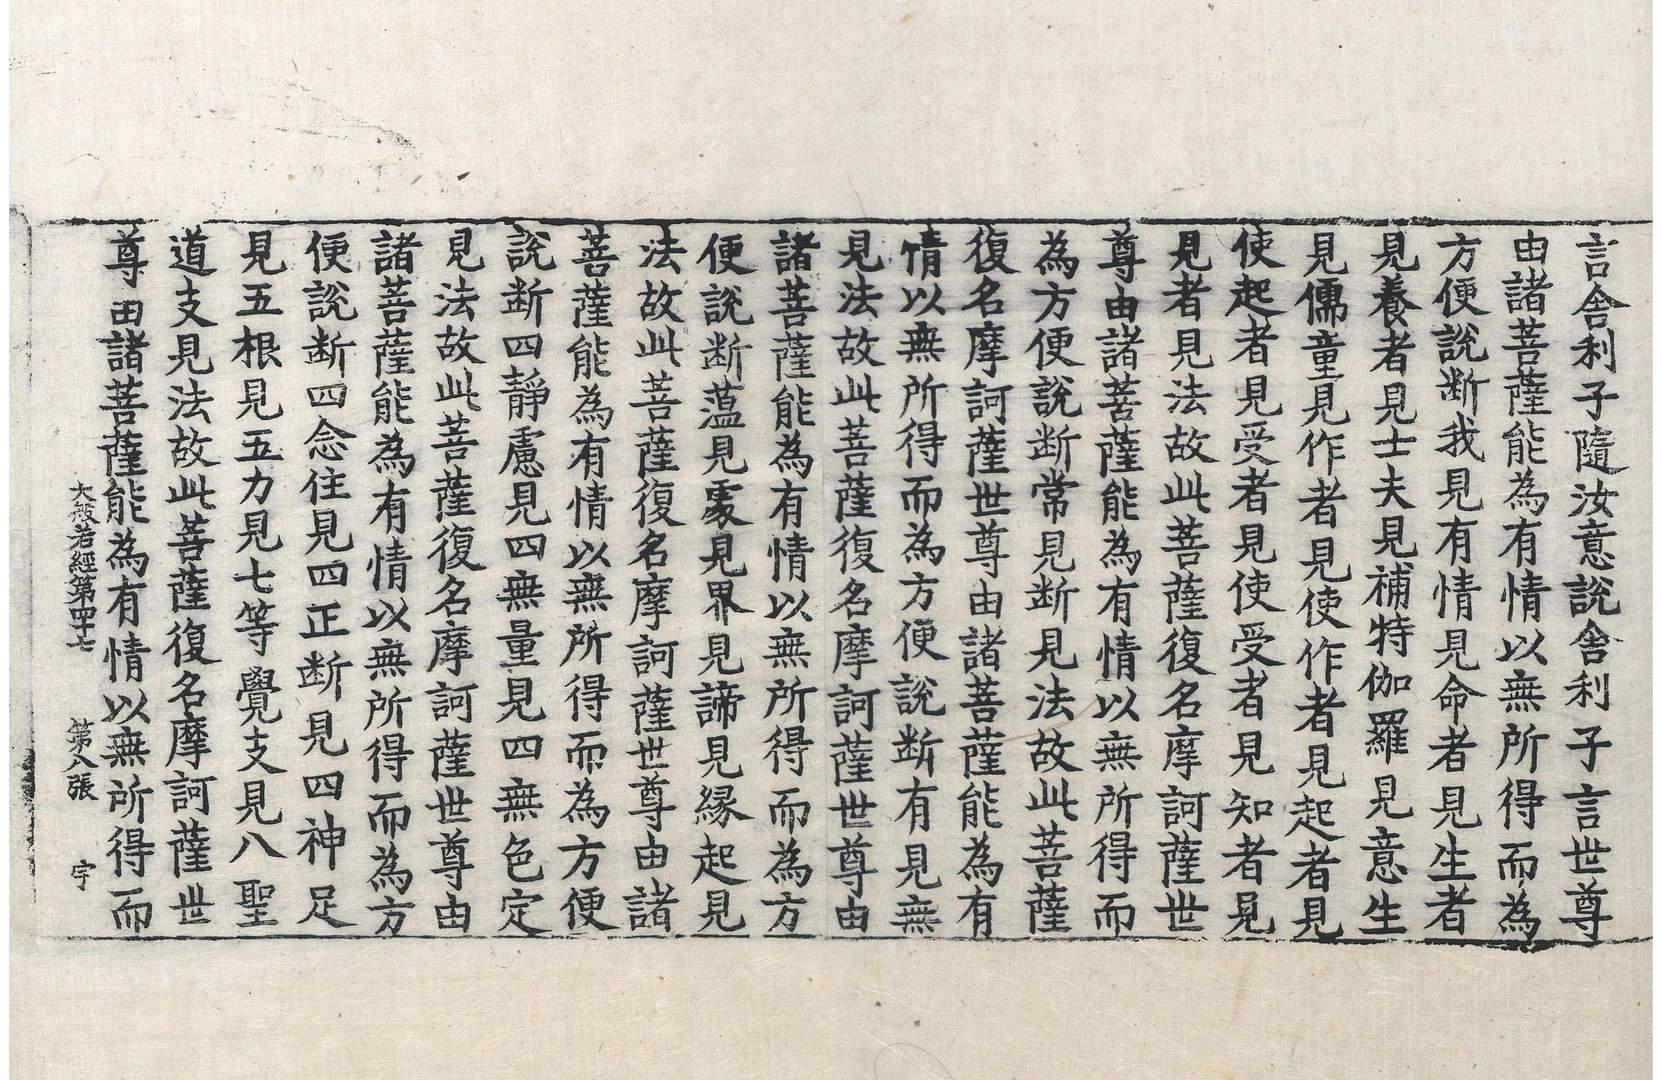 言舍利子隨汝意說舍利子言世尊
由諸菩薩能為有情以無所得而為
方便說断我見有情見命者見生者
見養者見士夫見補特伽羅見意生
見儒童見作者見使作者見起者見
使起者見受者見使受者見知者見
見者見法故此菩薩復名摩訶薩世
尊由諸菩薩能為有情以無所得而
為方便說断常見断見法故此菩薩
復名摩訶薩世尊由諸菩薩能為有
情以無所得而為方便說断有見無
見法故此菩薩復名摩訶薩世尊由
諸菩薩能為有情以無所得而為方
便說断薀見處見界見諦見緣起見
法故此菩薩復名摩訶薩世尊由諸
菩薩能為有情以無所得而為方便
說断四靜慮見四無量見四無色定
見法故此菩薩復名摩訶薩世尊由
諸菩薩能為有情以無所得而為方
便說断四念住見四正断見四神足
見五根見五力見七等覺支見八聖
道支見法故此菩薩復名摩訶薩世
尊由諸菩薩能為有情以無所得而
大般若經第四十七 第八張 宇